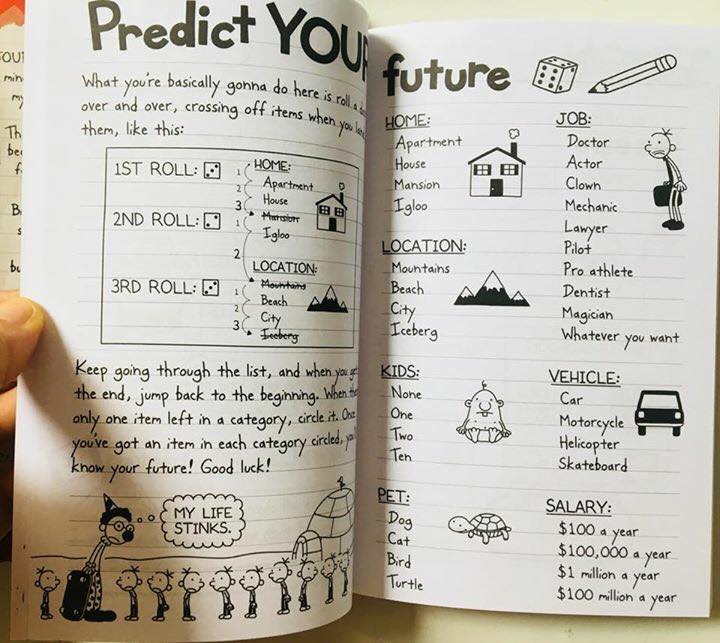 Predict YOUR future
What you're basically gonna do here is roll a
over and over, crossing off items when you
them, like this:
1ST ROLL:
2ND ROLL:
3RD ROLL:
1
2
3
1
2
1
2
3
HOME:
Apartment
House
Mansion
Igloo
LOCATION:
Mountains
Beach
City
Iceberg
Keep going through the list, and when you
the end, jump back to the beginning. When
only one item left in a category, circle it. Once
you've got an item in each category circled,
know your future! Good luck!
MY LIFE
STINKS.
HOME:
Apartment
House
Mansion
Igloo
LOCATION:
Mountains
Beach
City
Iceberg
KIDS:
None
One
Two
Ten
PET:
Dog
Cat
Bird
Turtle
JOB:
Doctor
Actor
Clown
Mechanic
Lawyer
Pilot
Pro athlete
Dentist
Magician
Whatever you want
VEHICLE:
Car
Motorcycle
Helicopter
Skateboard
SALARY:
$100 a year
$100,000 a year
$1 million a year
$100 million a year